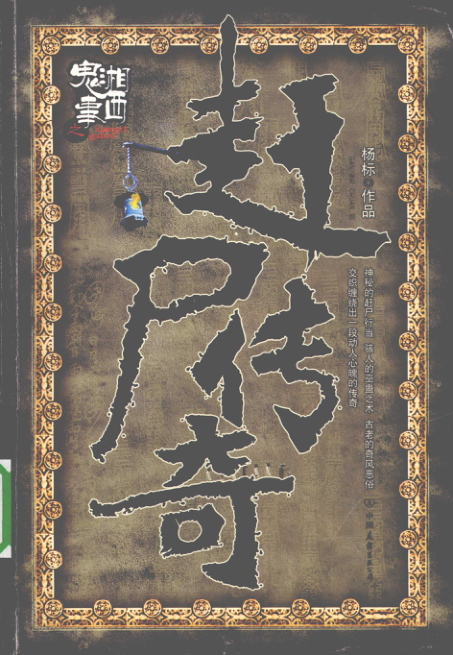 湘西
鬼事
之
赶尸传奇
杨标 作品
神秘的赶尸行当 骇人的巫蛊之术 古老的奇风恶俗
交织缠绕出一段动人心魄的传奇
中国友谊出版公司